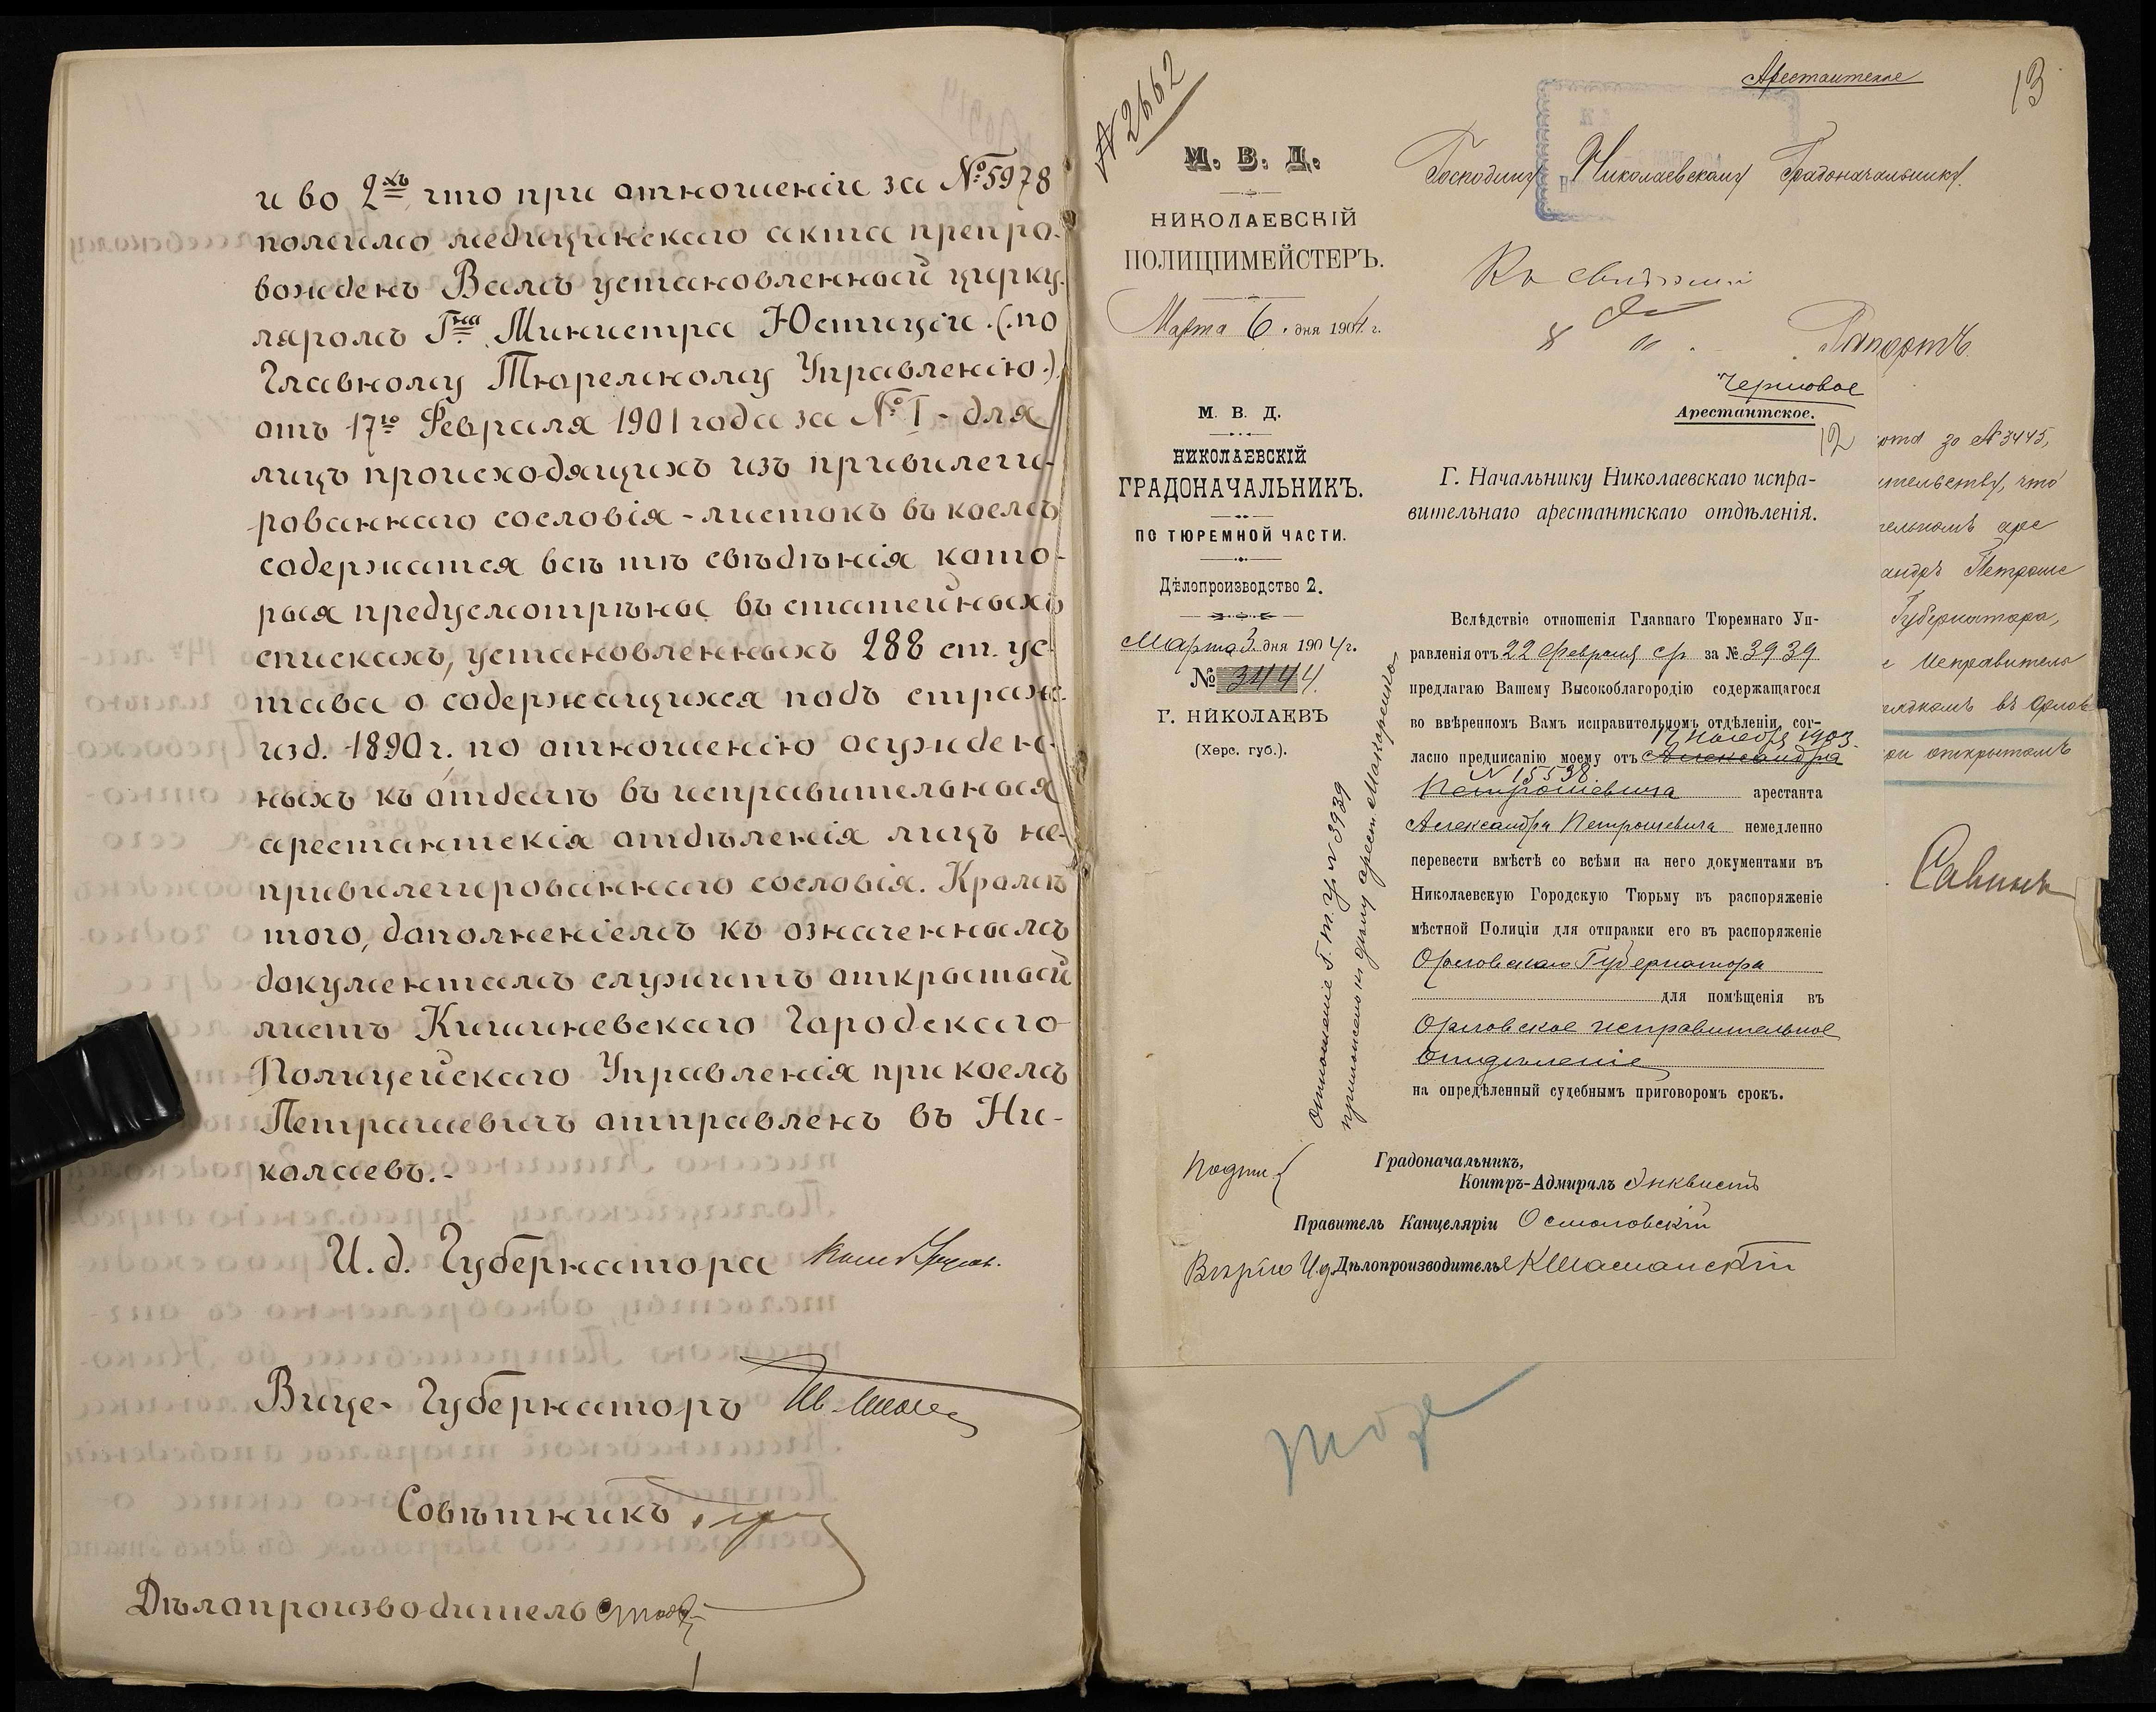 и во 2хъ, что при отношеніи за № 5978
помимо медицинскаго акта препро-
вожденъ Вамъ установленный цирку-
ляромъ Гна Министра Юстиціи (по
Главному Тюремному Управленію)
отъ 17го Февраля 1901 года за № 1 - для
лицъ происходящихъ изъ привилеги-
рованнаго сословія - листокъ въ коемъ
содержатся всѣ тѣ свѣдѣнія кото-
рыя предусмотрѣны въ статейныхъ
спискахъ, установленныхъ 288 ст. ус-
тава о содержащихся подъ страж.
изд. 1890 г. по отношенію осужден-
ныхъ къ отдачѣ въ исправительныя
арестантскія отдѣленія лицъ не-
привилегированнаго сословія. Кромѣ
того, дополненіемъ къ означеннымъ
документамъ служитъ открытый
листъ Кишиневскаго Городского
Полицейскаго Управленія при коемъ
Петрашевичъ отправленъ въ Ни-
колаевъ.-
И. д. Губернатора
Вице-Губернаторъ
Совѣтникъ
Дѣлопроизводитель
№ 2662
Арестантское
13
М. В. Д.
НИКОЛАЕВСКІЙ
ПОЛИЦІИМЕЙСТЕРЪ.
Марта 6 дня 1904 г.
Господину Николаевскому Градоначальнику.
Къ свѣдѣнію
Рапортъ.
за № 3445,
что
аре
Петраше
Губернатора,
Исправитель
въ Орлов
открытомъ
Савинъ
Черновое
Арестантское.
12
М. В. Д.
НИКОЛАЕВСКІЙ
ГРАДОНАЧАЛЬНИКЪ.
ПО ТЮРЕМНОЙ ЧАСТИ.
Дѣлопроизводство 2.
Марта 3 дня 1904 г.
№ 3444.
Г. НИКОЛАЕВЪ
(Херс. губ.).
Г. Начальнику Николаевскаго испра-
вительнаго арестантскаго отдѣленія.
Вслѣдствіе отношенія Главнаго Тюремнаго Уп-
равленія отъ 22 Февраля с/г за № 3939
предлагаю Вашему Высокоблагородію содержащагося
во ввѣренномъ Вамъ исправительномъ отдѣленіи, сог-
17 ноября 1903.
ласно предписанію моему отъ Александра
№ 15538
Петрошевича арестанта
Александра Петрошевича немедленно
перевести вмѣстѣ со всѣми на него документами въ
Николаевскую Городскую Тюрьму въ распоряженіе
мѣстной Полиціи для отправки его въ распоряженіе
Орловскаго Губернатора
для помѣщенія въ
Орловское исправительное
отдѣленіе
на опредѣленный судебнымъ приговоромъ срокъ.
Отношеніе Г. Т. Упр № 3939
арест. Макаренко
Подпи.
Градоначальникъ,
Контръ-Адмиралъ Энквистъ
Правитель Канцеляріи Осмоловскій
Вѣрно И.д. Дѣлопроизводителя